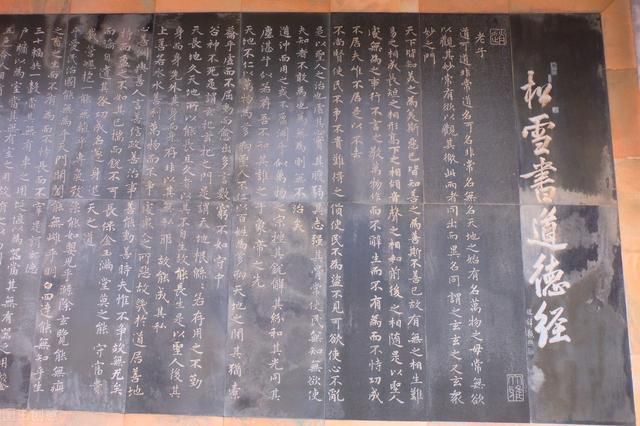 松雪書道德經
老子
道可道非常道名可名非常名無名天地之始有名萬物之母常無欲
以觀其妙常有欲以觀其徼此兩者同出而異名同謂之玄玄之又玄衆
妙之門
天下皆知美之為美斯惡已皆知善之為善斯不善已故有無之相生難
易之相成長短之相形高下之相傾音聲之相和前後之相隨是以聖人
處無為之事行不言之教萬物作而不辭生而不有為而不恃功成
不居夫惟不居是以不去
不尚賢使民不爭不貴難得之貨使民不為盜不見可欲使心不亂
是以聖人之治也虛其心實其腹弱其志強其骨常使民無知無欲使
夫知者不敢為也為無為則無不治矣
道沖而用之或不盈淵乎似萬物之宗挫其銳解其紛和其光同其
塵湛乎似若存吾不知其誰之子象帝之先
天地不仁以萬物為芻狗聖人不仁以百姓為芻狗天地之間其猶橐
籥乎虛而不屈動而愈出多言數窮不如守中
谷神不死是謂玄牝玄牝之門是謂天地根緜緜若存用之不勤
天長地久天地所以能長且久者以其不自生故能長生是以聖人後其
身而身先外其身而身存非以其無私耶故能成其私
上善若水水善利萬物而不爭處衆人之所惡故幾於道居善地
心善淵與善人言善信政善治事善能動善時夫惟不爭故無尤矣
持而盈之不如其已揣而銳不可長保金玉滿堂莫之能守富貴
而驕自遺其咎功成名遂身退天之道
載營魄抱一能無離乎專氣致柔能如嬰兒乎滌除玄覽能無疵
乎愛民治國能無為乎天門開闔能無雌乎明白四達能無知乎生
之畜之生而不有為而不恃長而不宰是謂玄德
三十輻共一轂當其無有車之用埏埴以為器當其無有器之用鑿
戶牖以為室當其無有室之用